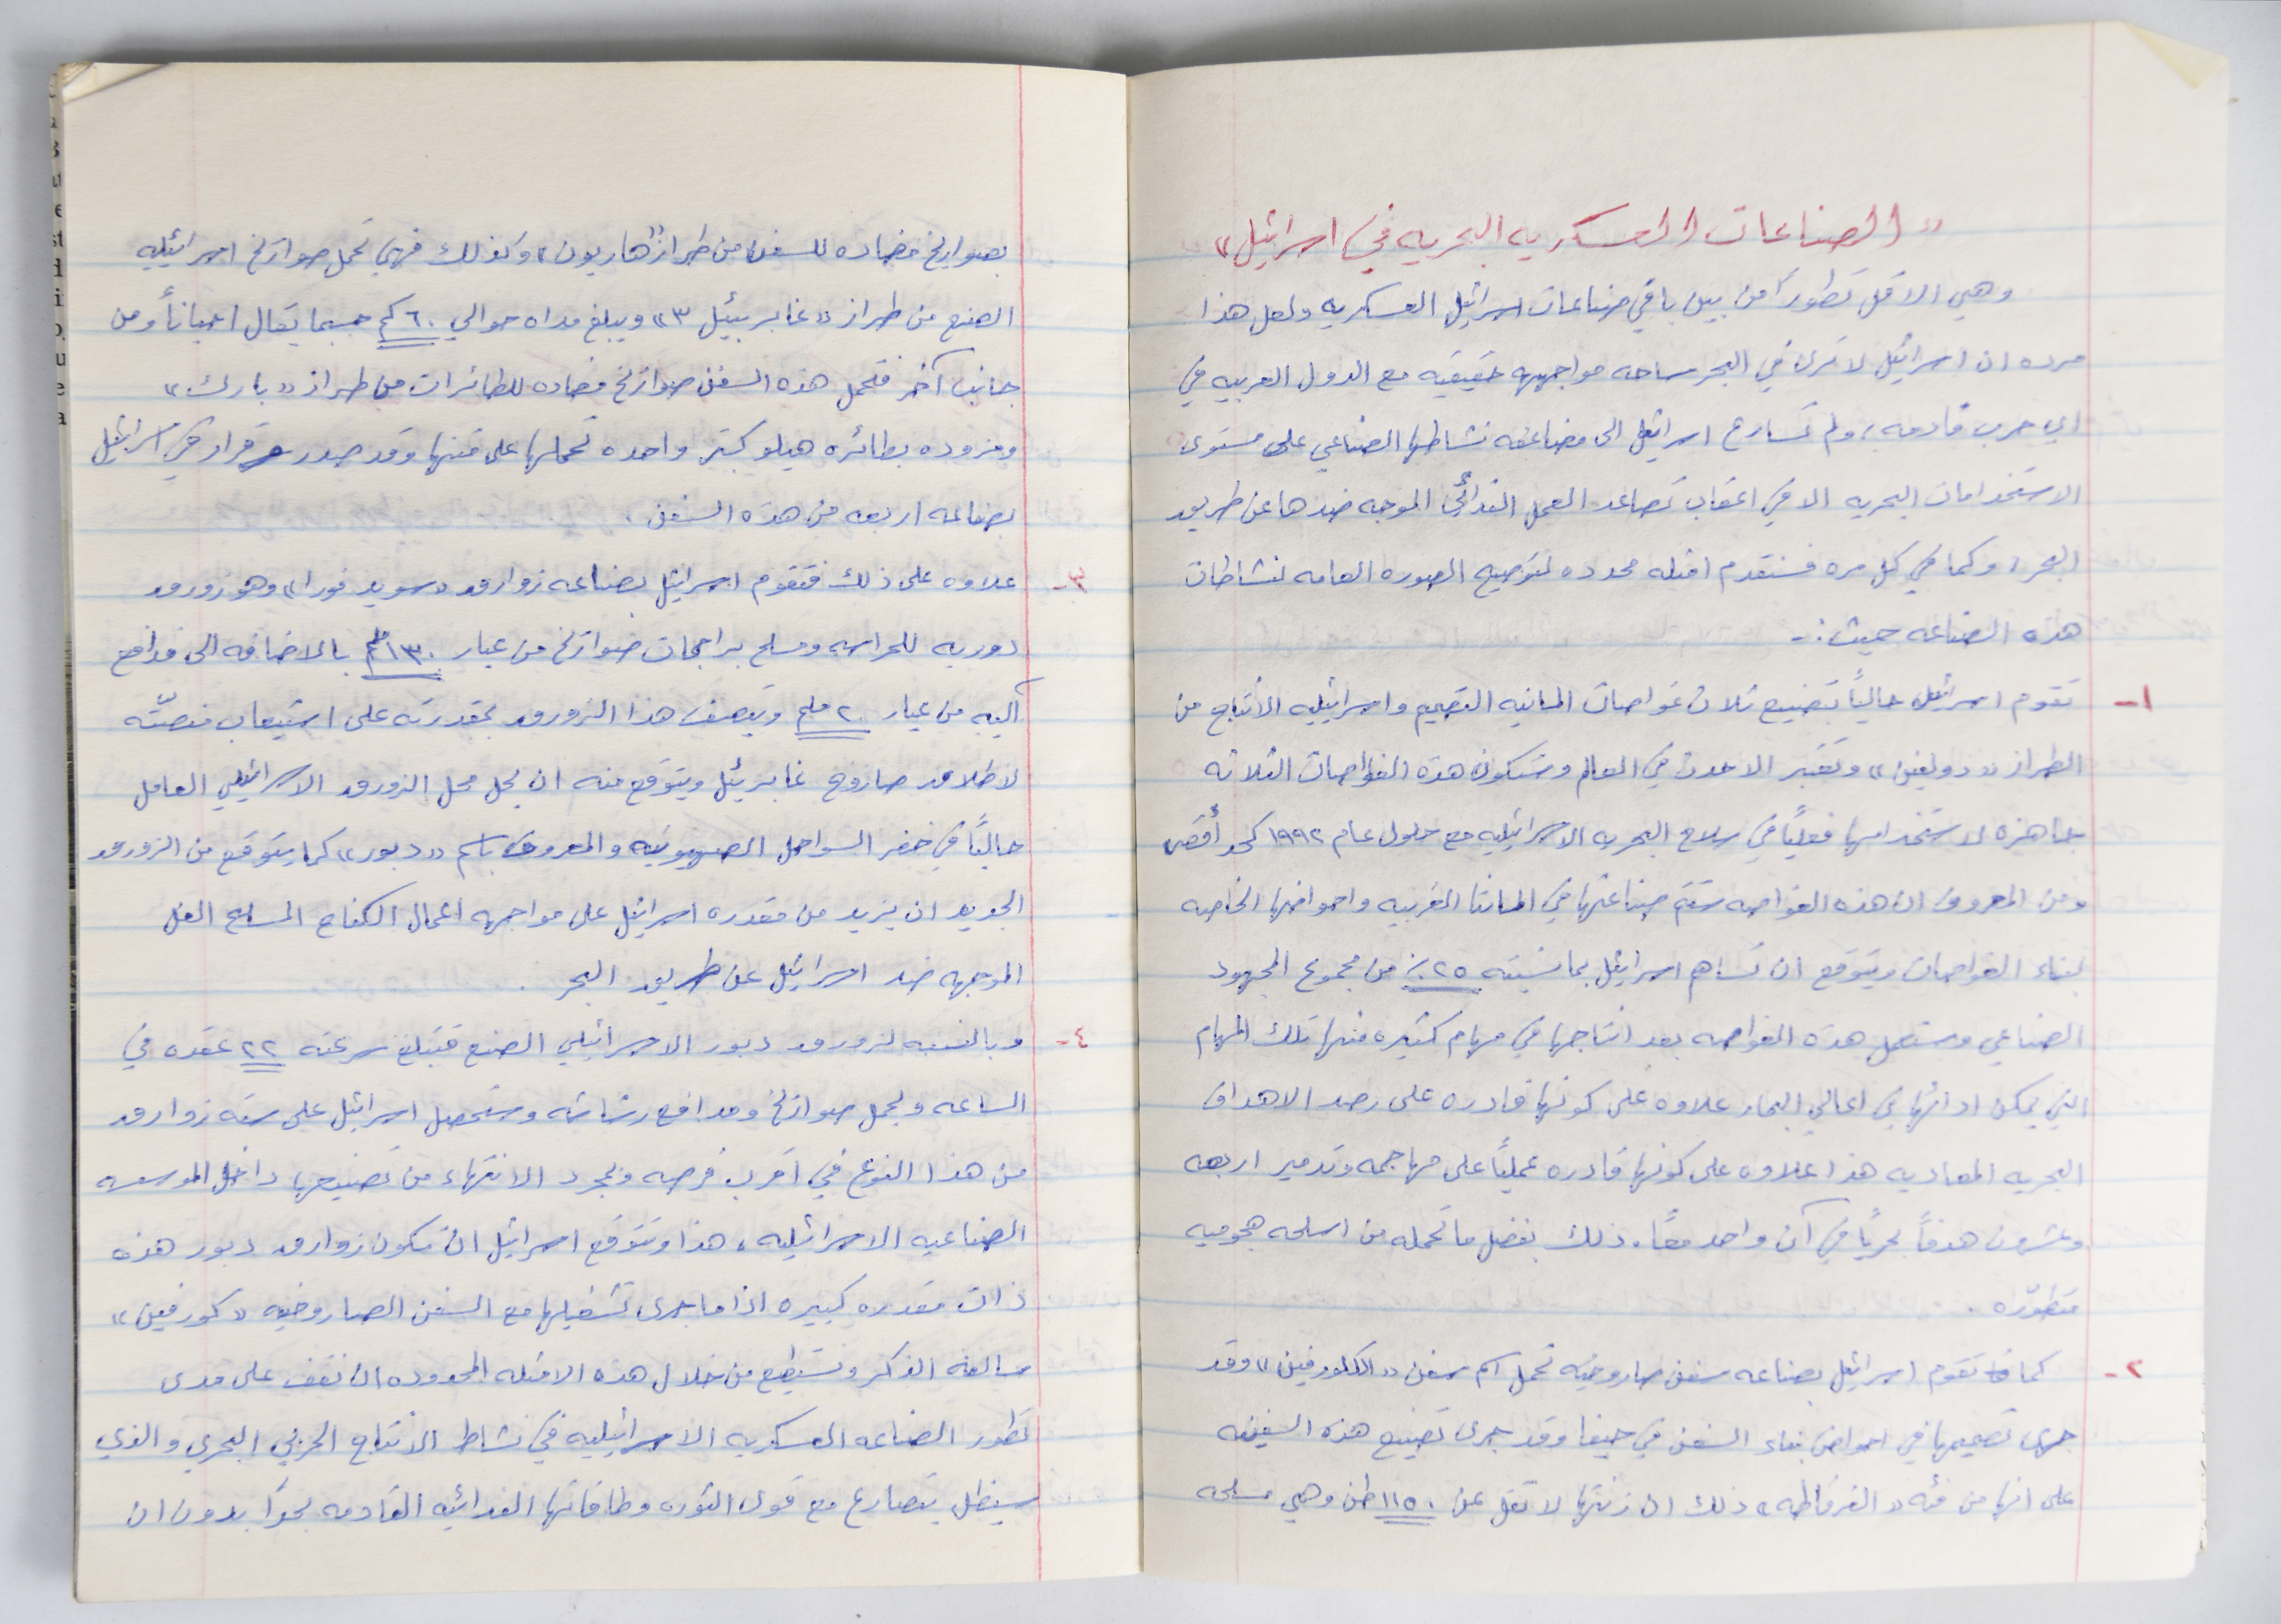 «الصناعات العسكريه البحريه في اسرائيل»
وهي الاقل تطوراً من بين باقي صناعات اسرائيل العسكريه ولعل هذا
مرده ان اسرائيل لا ترى في البحر ساحه مواجهه حقيقيه مع الدول العربيه في
اي حرب قادمه، ولم تسارع اسرائيل الى مضاعفه نشاطها الصناعي على مستوى
الاستخدامات البحريه الا في اعقاب تصاعد العمل الفدائي الموجه ضدها عن طريق
البحر، وكما في كل مره فسنقدم امثله محدده لتوضيح الصوره العامه لنشاطات
هذه الصناعه حيث:-
١- تقوم اسرائيل حالياً بتصنيع ثلاث غواصات المانيه التصميم واسرائيليه الأنتاج من
الطراز «دولفين» وتعتبر الاحدث في العالم وستكون هذه الغواصات الثلاثه
جاهزه لاستخدامها فعلياً في سلاح البحريه الاسرائيليه مع حلول عام ١٩٩٢ كحد أقصى
ومن المعروف ان هذه الغواصه ستتم صناعتها في المانيا الغربيه واحواضها الخاصه
لبناء الغواصات ويتوقع ان تساهم اسرائيل بما نسبته ٢٥٪ من مجموع المجهود
الصناعي وستعمل هذه الغواصه بعد انتاجها في مهام كثيره منها تلك المهام
التي يمكن ادائها في اعالي البحار علاوه على كونها قادره على رصد الاهداف
البحريه المعاديه هذا علاوه على كونها قادره عملياً على مهاجمه وتدمير اربعه
وعشرون هدفاً بحرياً في آن واحد معاً. ذلك بفضل ما تحمله من اسلحه هجوميه
متطوّره.
٢- كما تقوم اسرائيل بصناعه سفن صاروخيه تحمل اسم سفن «الكورفين» وقد
جرى تصميمها في احواض بناء السفن في حيفا وقد جرى تصنيع هذه السفينه
على انها من فئه «الفرقاطه» ذلك ان زنتها لا تقل عن ١١٥٠ طن وهي مسلحه
بصواريخ مضاده للسفن من طراز «هاربون» وكذلك فهي تحمل صواريخ اسرائيليه
الصنع من طراز «غابرييل ٣» ويبلغ مداه حوالي ٦٠ كم حسبما يقال احياناً ومن
جانب آخر فتحمل هذه السفن صواريخ مضاده للطائرات من طراز «بارك»
ومزوده بطائره هيلوكبتر واحده تحملها على متنها وقد صدر قرار في اسرائيل
بصناعه اربعه من هذه السفن.
٣- علاوه على ذلك فتقوم اسرائيل بصناعه زوارق «سوبر فورا» وهو زورق
دوريه للحراسه ومسلح براجمات صواريخ من عيار ١٣٠ ملم بالاضافه الى مدافع
آليه من عيار ٢٠ ملم ويتصف هذا الزورق بمقدرته على استيعاب منصّته
لاطلاق صاروخ غابرييل ويتوقع منه ان يحل محل الزورق الاسرائيلي العامل
حالياً في خفر السواحل الصهيونيه والمعروف باسم «دبور» كما يتوقع من الزورق
الجديد ان يزيد من مقدره اسرائيل على مواجهه اعمال الكفاح المسلح
الموجهه ضد اسرائيل عن طريق البحر.
٤- وبالنسبه لزورق دبور الاسرائيلي الصنع فتبلغ سرعته ٢٢ عقده في
الساعه ويحمل صواريخ ومدافع رشاشه وستحصل اسرائيل على سته زوارق
من هذا النوع في اقرب فرصه وبمجرد الانتهاء من تصنيعها داخل المؤسسه
الصناعيه الاسرائيليه، هذا وتتوقع اسرائيل ان تكون زوارق دبور هذه
ذات مقدره كبيره اذا ما جرى تشغيلها مع السفن الصاروخيه «كورفين»
سالفه الذكر ونستطيع من خلال هذه الامثله المحدوده ان نقف على مدى
تطور الصناعه العسكريه الاسرائيليه في نشاط الانتاج الحربي البحري والذي
سيظل يتصارع مع قوى الثوره وطاقاتها الفدائيه القادمه بحراً بدون ان